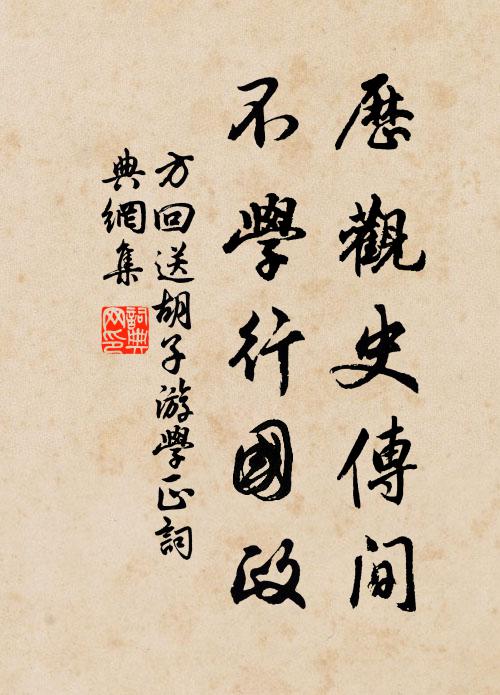 歷觀史傳間
不學行國政
方回送胡子游學正詞
典網集
詞典网印